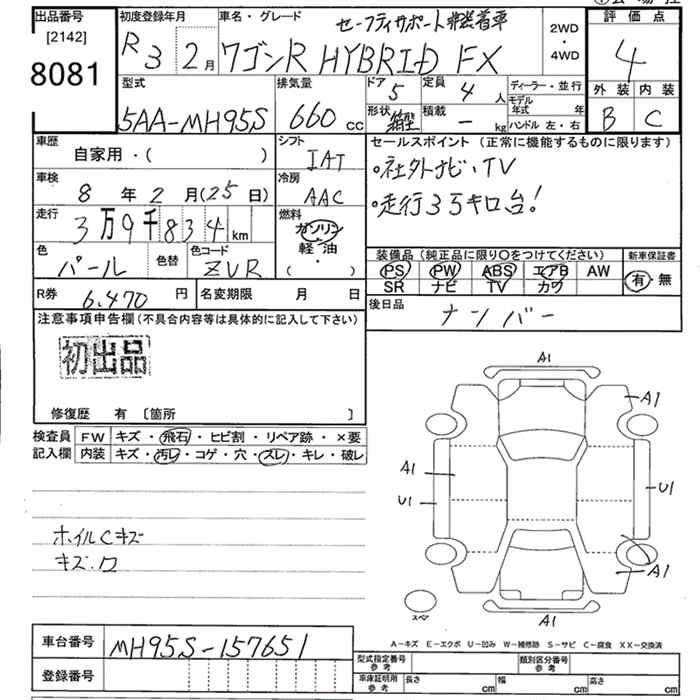 出品番号
[2142]
8081
初度登録年月
R3 2月
車名・グレード
セーフティサポート非装着車
ワゴンR HYBRID FX
2WD
・
4WD
評価点
4
外装 内装
B C
型式
5AA-MH95S
排気量
660 cc
ドア 5
定員 4 人
形状 箱型
積載 - kg
ディーラー・並行
モデル年式 年
ハンドル 左・右
車歴
自家用・( )
シフト
IAT
車検
8年2月(25日)
冷房
AAC
走行
3万9千834km
燃料
ガソリン
軽・油
( )
色
パール
色替
色コード
ZVR
R券 6,470円
名変期限 月 日
セールスポイント (正常に機能するものに限ります)
・社外ナビ・TV
・走行3万キロ台!
装備品 (純正品に限り○をつけてください)
新車保証書
PS PW ABS エアB AW
SR ナビ TV カワ
有・無
後日品
ナンバー
注意事項申告欄 (不具合内容等は具体的に記入して下さい)
初出品
修復歴 有 〔箇所 〕
検査員
記入欄
FW キズ・飛石・ヒビ割・リペア跡・×要
内装 キズ・汚レ・コゲ・穴・スレ・キレ・破レ
ホイルCキズ
キズ・ワ
A1
A1
A1
U1
U1
A1
A1
スペア
A-キズ E-エクボ U-凹み W-補修跡 S-サビ C-腐食 XX-交換済
車台番号 MH95S-157651
登録番号
型式指定番号
参考
類別区分番号
参考
車庫証明用
参考
長さ cm 幅 cm 高さ cm